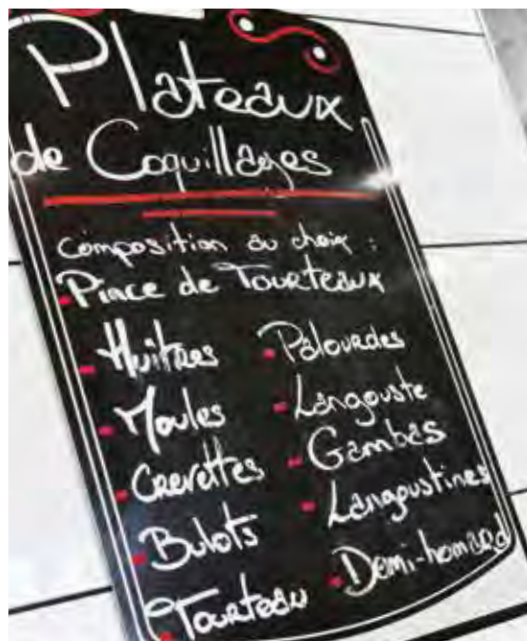 Plateaux
de Coquillages
Composition au choix :
- Pince de Tourteaux
- Huitres
- Moules
- Crevettes
- Bulots
- Tourteau
- Palourdes
- Langouste
- Gambas
- Langoustines
- Demi-homard